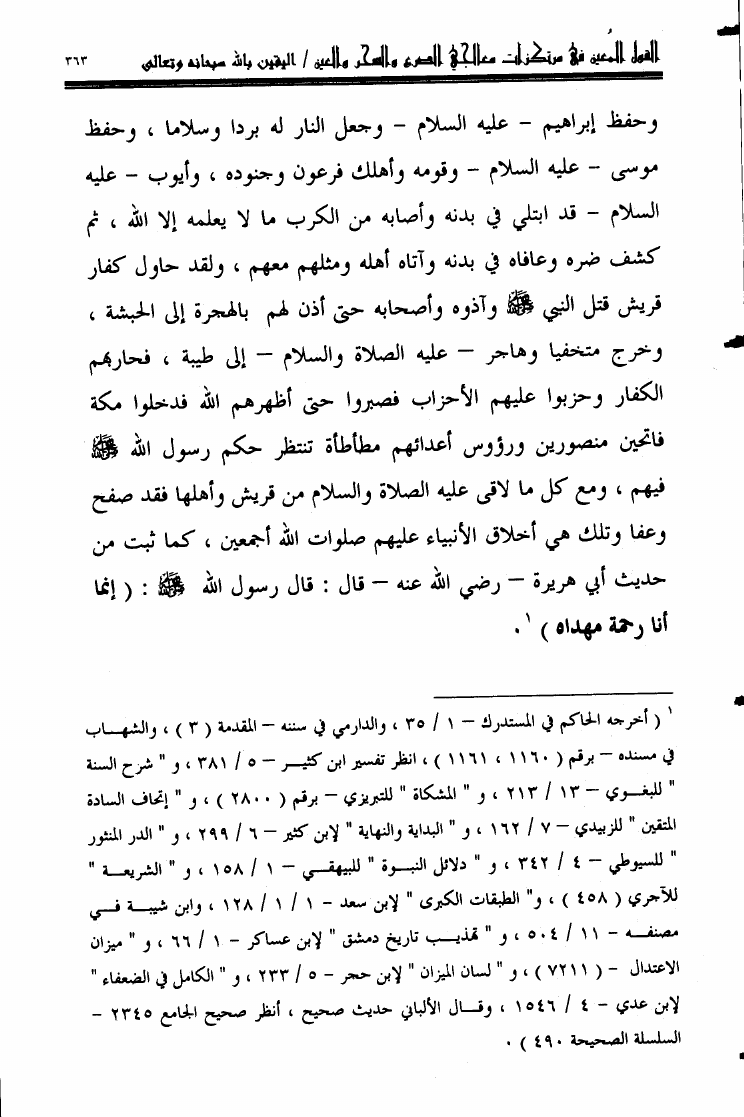 القول المُعين في مرتكزات معالجي الصرع والسحر والعين / اليقين بالله سبحانه وتعالى ٣٦٣
وحفظ إبراهيم – عليه السلام – وجعل النار له بردا وسلاما ، وحفظ
موسى – عليه السلام – وقومه وأهلك فرعون وجنوده ، وأيوب – عليه
السلام – قد ابتلي في بدنه وأصابه من الكرب ما لا يعلمه إلا الله ، ثم
كشف ضره وعافاه في بدنه وآتاه أهله ومثلهم معهم ، ولقد حاول كفار
قريش قتل النبي ﷺ وآذوه وأصحابه حتى أذن لهم بالهجرة إلى الحبشة ،
وخرج متخفيا وهاجر – عليه الصلاة والسلام – إلى طيبة ، فحاربهم
الكفار وحزبوا عليهم الأحزاب فصبروا حتى أظهرهم الله فدخلوا مكة
فاتحين منصورين ورؤوس أعدائهم مطأطأة تنتظر حكم رسول الله ﷺ
فيهم ، ومع كل ما لاقى عليه الصلاة والسلام من قريش وأهلها فقد صفح
وعفا وتلك هي أخلاق الأنبياء عليهم صلوات الله أجمعين ، كما ثبت من
حديث أبي هريرة – رضي الله عنه – قال : قال رسول الله ﷺ : ( إنما
أنا رحمة مهداه ) ١ .
١ ( أخرجه الحاكم في المستدرك – ١ / ٣٥ ، والدارمي في سننه – المقدمة ( ٣ ) ، والشهـــاب
في مسنده – برقم ( ١١٦٠ ، ١١٦١ ) ، انظر تفسير ابن كثيـــر – ٥ / ٣٨١ ، و " شرح السنة
" للبغـــوي – ١٣ / ٢١٣ ، و " المشكاة " للتبريزي – برقم ( ٢٨٠٠ ) ، و " إتحاف السادة
المتقين " للزبيدي – ٧ / ١٦٢ ، و " البداية والنهاية " لإبن كثير – ٦ / ٢٩٩ ، و " الدر المنثور
" للسيوطي – ٤ / ٣٤٢ ، و " دلائل النبـــوة " للبيهقـــي – ١ / ١٥٨ ، و " الشريعـــة "
للآجري ( ٤٥٨ ) ، و" الطبقات الكبرى " لإبن سعد – ١ / ١ / ١٢٨ ، وابن شيبـــة فـــي
مصنفـــه – ١١ / ٥٠٤ ، و " تهذيـــب تاريخ دمشق " لإبن عساكر – ١ / ٦٦ ، و " ميزان
الاعتدال – ( ٧٢١١ ) ، و " لسان الميزان " لإبن حجر – ٥ / ٢٣٣ ، و " الكامل في الضعفاء "
لإبن عدي – ٤ / ١٥٤٦ ، وقـــال الألباني حديث صحيح ، أنظر صحيح الجامع ٢٣٤٥ –
السلسلة الصحيحة ٤٩٠ ) .